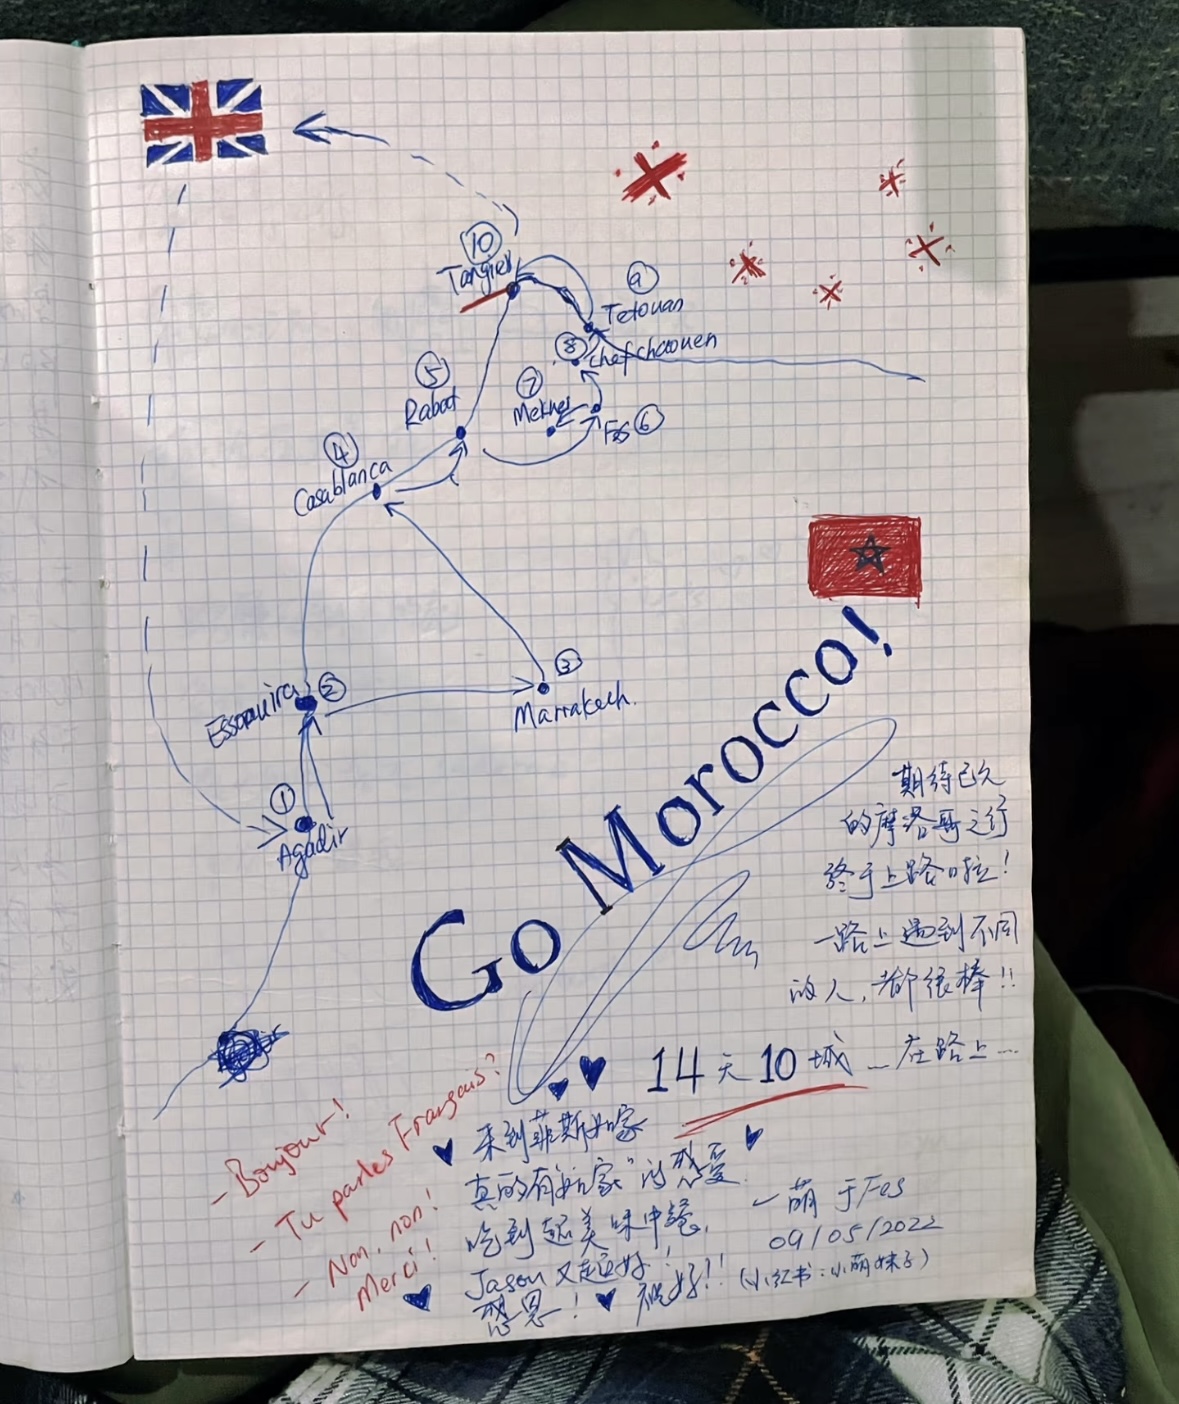 10
Tangier
9
Tetouan
8
Chefchaouen
5
Rabat
7
Meknes
Fes 6
4
Casablanca
Essaouira 2
3
Marrakech.
1
Agadir
Go Morocco!
期待已久
的摩洛哥之行
终于上路啦!
一路上遇到不同
的人,都很棒!!
14天10城 ...在路上...
- Bonjour!
- Tu parles Français?
- Non, non!
Merci!
来到菲斯如家
真的有"如家"的感受
吃到超美味中餐,
Jason又超好!
感恩! 祝好!!
—萌 于Fes
09/05/2022
(小红书:小萌妹子)